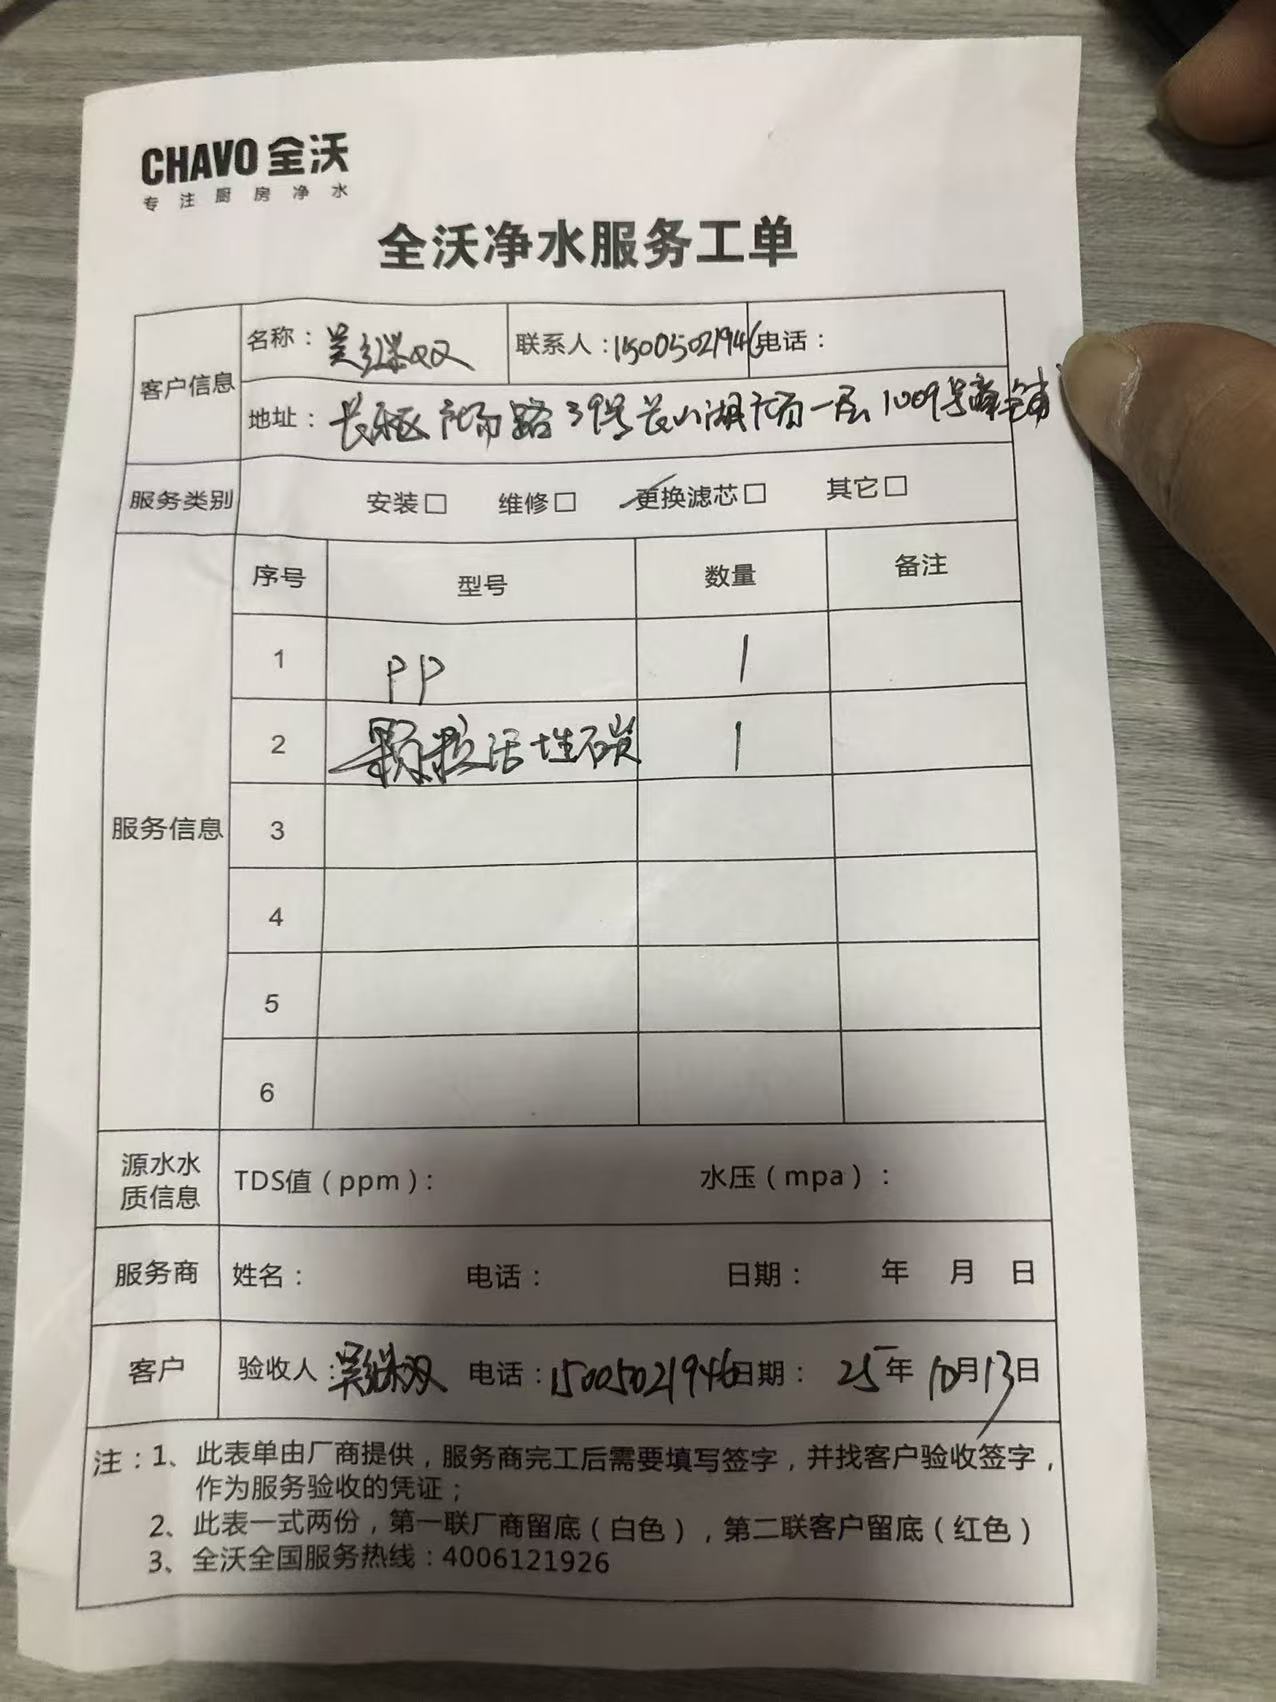 CHAVO 全沃
专注厨房净水
全沃净水服务工单
客户信息 名称： 吴继双 联系人：15005021946 电话：
地址： 长乐区 市场路 39号 长山湖市场一层 1009号商铺
服务类别 安装□ 维修□ 更换滤芯□ 其它□
服务信息 序号 型号 数量 备注
1 PP 1
2 颗粒活性碳 1
3
4
5
6
源水水质信息 TDS值（ppm）： 水压（mpa）：
服务商 姓名： 电话： 日期： 年 月 日
客户 验收人：吴继双 电话：15005021946 日期： 25年 10月13日
注：1、此表单由厂商提供，服务商完工后需要填写签字，并找客户验收签字，
作为服务验收的凭证；
2、此表一式两份，第一联厂商留底（白色），第二联客户留底（红色）
3、全沃全国服务热线：4006121926